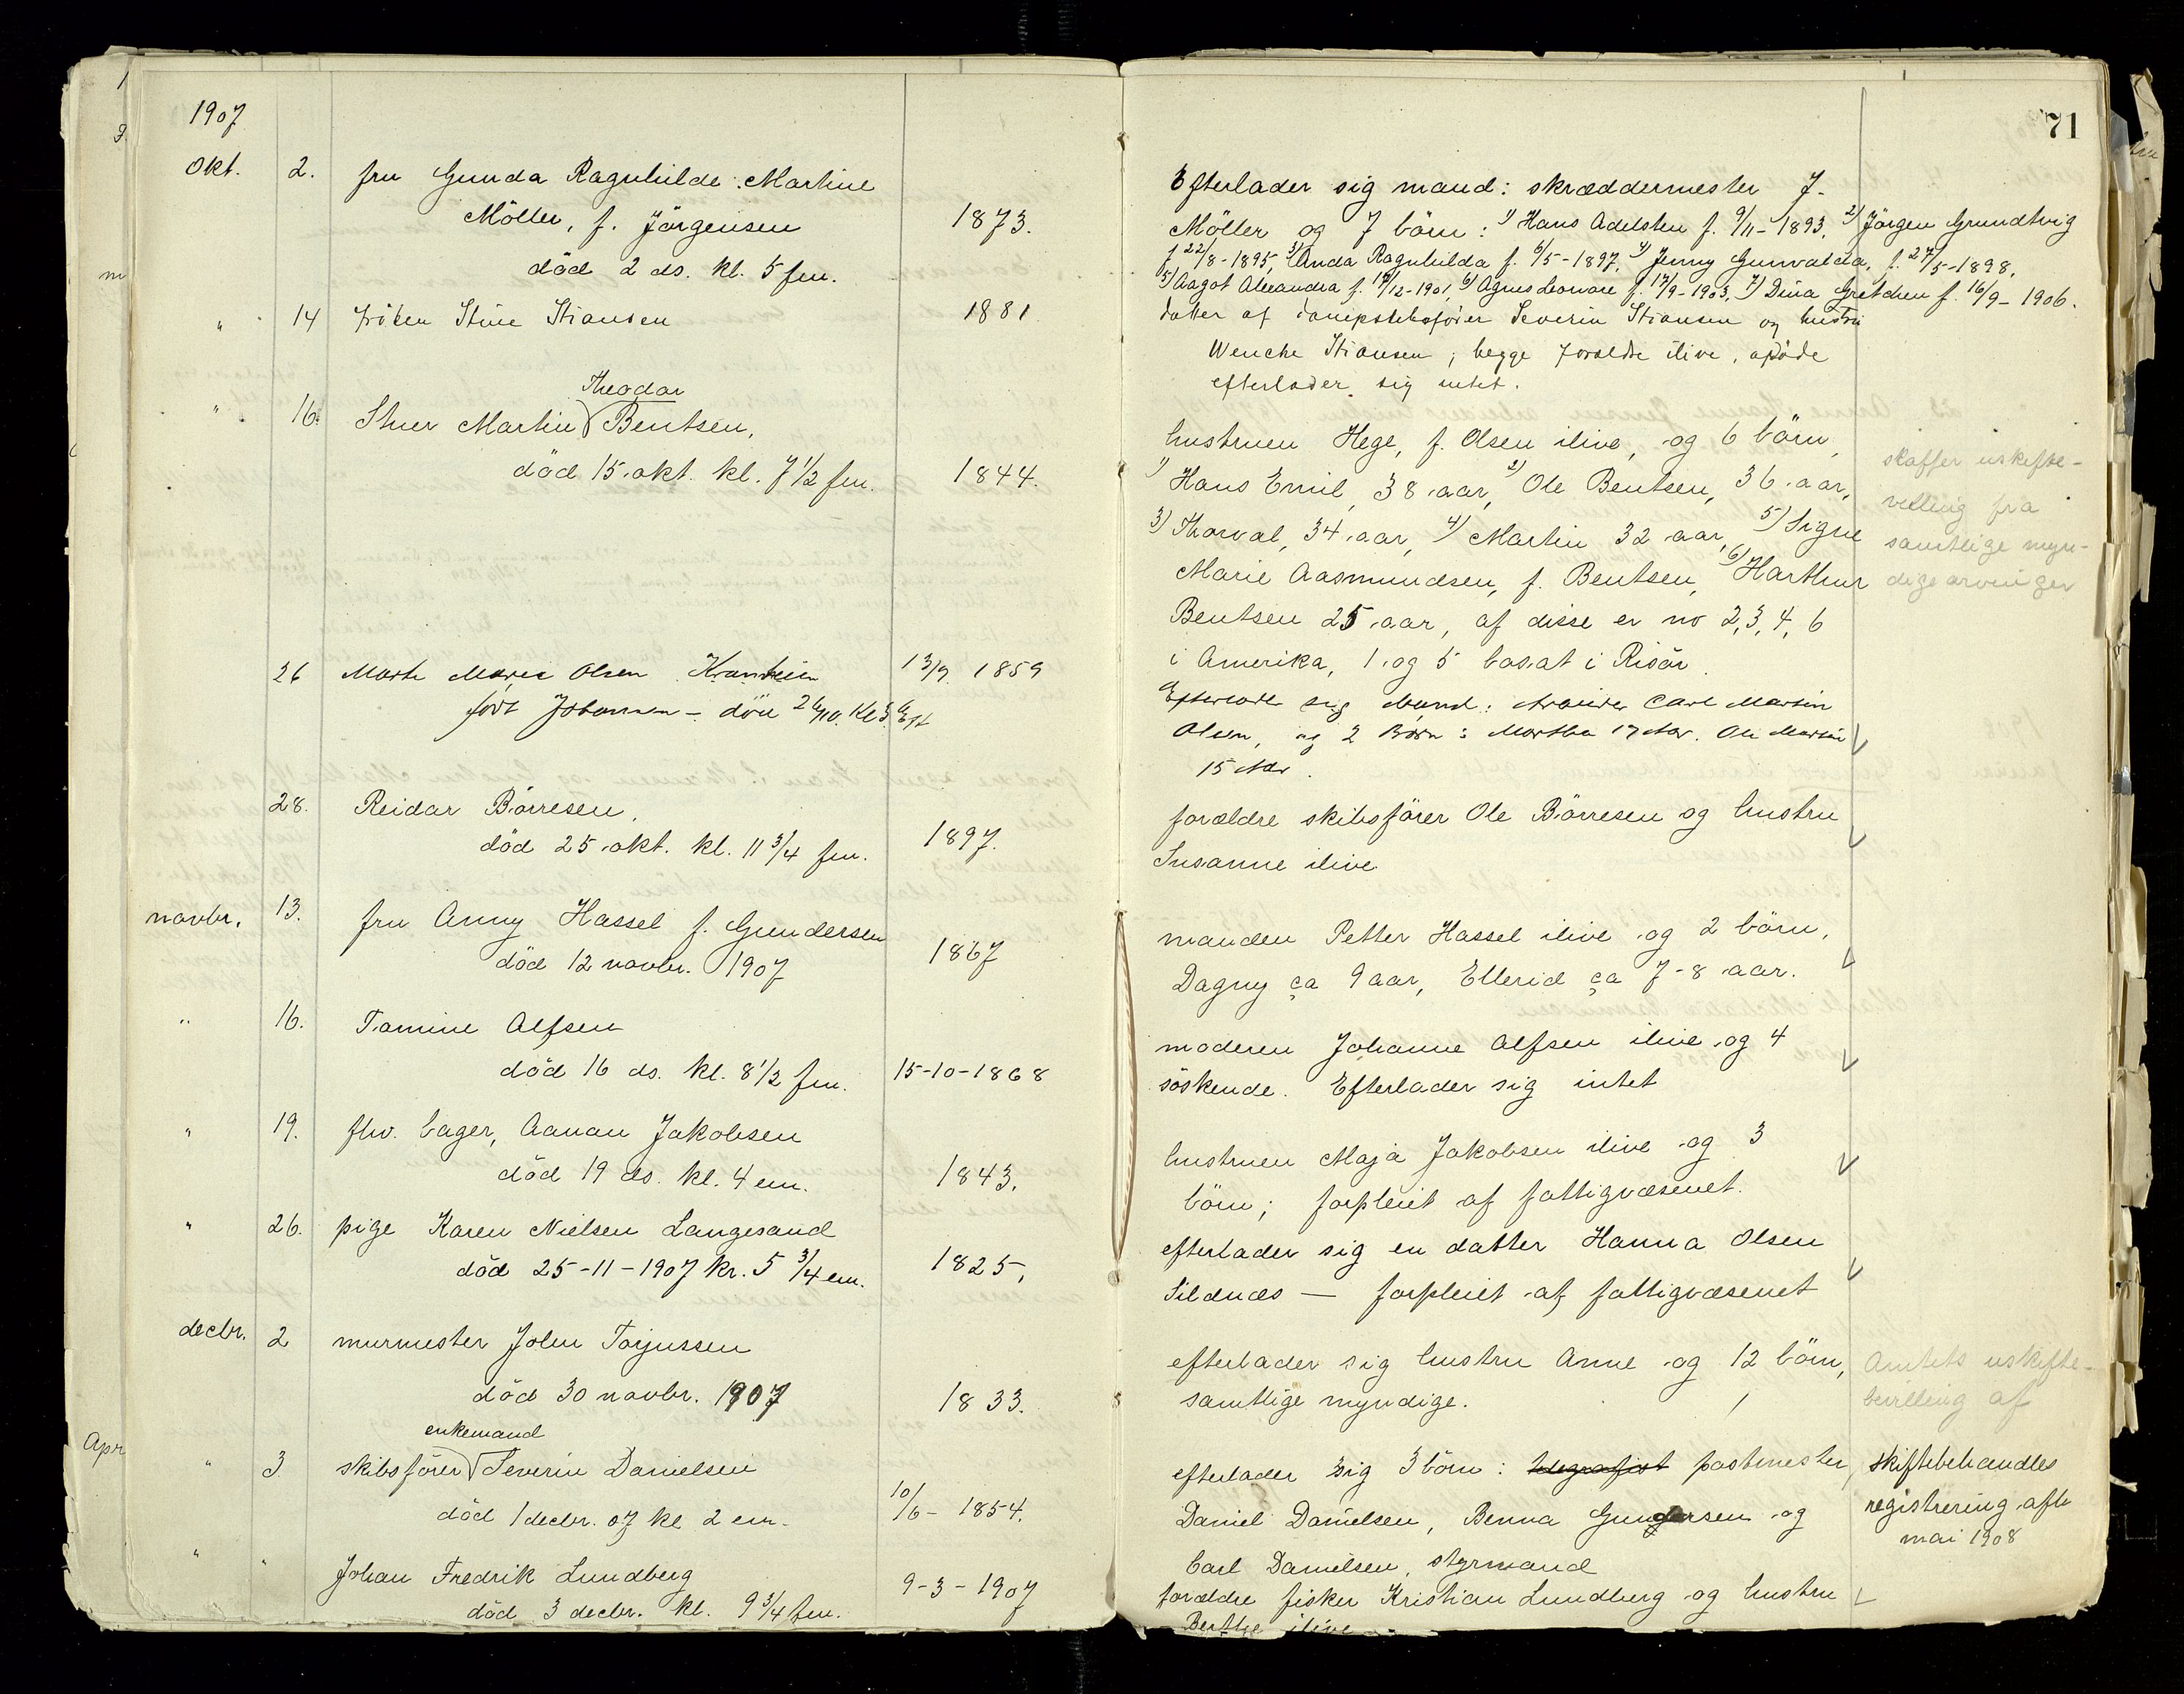 1907
71
Okt. 2. fru Gunda Ragnhilde Martine
Möller, f. Jörgensen 1873.
död 2 ds. kl. 5 fm.
Efterlader sig mand: skræddermester J.
Möller og 7 börn: 1) Hans Adelsten f. 9/11-1893, 2) Jörgen Grundtvig
f 22/8-1895, 3) Anda Ragnhilda f. 6/5-1897, 4) Jenny Gunvalda, f. 27/5-1898,
5) Aagot Alexandra f. 19/12-1901, 6) Agnes Leonore f. 17/9-1903, 7) Dina Gretchen f. 16/9-1906.
" 14 Fröken Stine Stiansen 1881
datter af dampskibsförer Severin Stiansen og hustru
Wenche Stiansen; begge forældre ilive, afdöde
efterlader sig intet.
Theodor
" 16. Stuer Martin Bentsen,
död 15 okt. kl. 7 1/2 fm. 1844.
hustruen Hege, f. Olsen ilive, og 6 börn,
1) Hans Emil, 38 aar, 2) Ole Bentsen, 36 aar,
3) Thorval, 34 aar, 4) Martin 32 aar, 5) Signe
Marie Aasmundsen, f. Bentsen, 6) Harthur
Bentsen 25 aar, af disse er no 2, 3, 4, 6
i Amerika, 1 og 5 bosat i Risör.
skaffer uskifte-
villing fra
samtlige myn-
dige arvinger
26 Marte Marie Olsen Kranheim 13/9 1859
född Johansen - död 26/10. Kl 3 Eft
Efterlader sig Mand: Arbeider Carl Martin
Olsen, og 2 Börn: Martha 17 Aar. Ole Martin
15 Aar.
28. Reidar Börresen,
död 25 okt. kl. 11 3/4 fm. 1897.
forældre skibsförer Ole Börresen og hustru
Susanne ilive
novbr. 13. fru Anny Hassel f. Gundersen
död 12 novbr. 1907 1867
manden Petter Hassel ilive og 2 börn,
Dagny ca 9 aar, Ellerid ca 7-8 aar.
" 16. Tomine Alfsen
död 16 ds. kl. 8 1/2 fm. 15-10-1868
moderen Johanne Alfsen ilive og 4
söskende. Efterlader sig intet
" 19. fhv. bager, Aanan Jakobsen
död 19 ds. kl. 4 em. 1843.
hustruen Maja Jakobsen ilive og 3
börn; forpleiet af fattigvæsenet.
" 26. pige Karen Nielsen Langesand
död 25-11-1907 kr. 5 3/4 em. 1825,
efterlader sig en datter Hanna Olsen
Sildnæs — forpleiet af fattigvæsenet
decbr. 2 murmester John Torjussen
död 30 novbr. 1907 1833.
efterlader sig hustru Anne og 12 börn,
samtlige myndige.
Amtets uskifte-
bevilling af
enkemand
" 3 skibsförer Severin Danielsen
död 1 decbr. 07 kl 2 em. 10/6 - 1854.
efterlader sig 3 börn: telegrafist postmester
Daniel Danielsen, Benna Gundersen og
Carl Danielsen, styrmand
skiftebehandles
registrering afh
mai 1908
" " Johan Fredrik Lundberg
död 3 decbr. kl. 9 3/4 fm. 9-3-1907
forældre fisker Kristian Lundberg og hustru
Berthe ilive
Apr